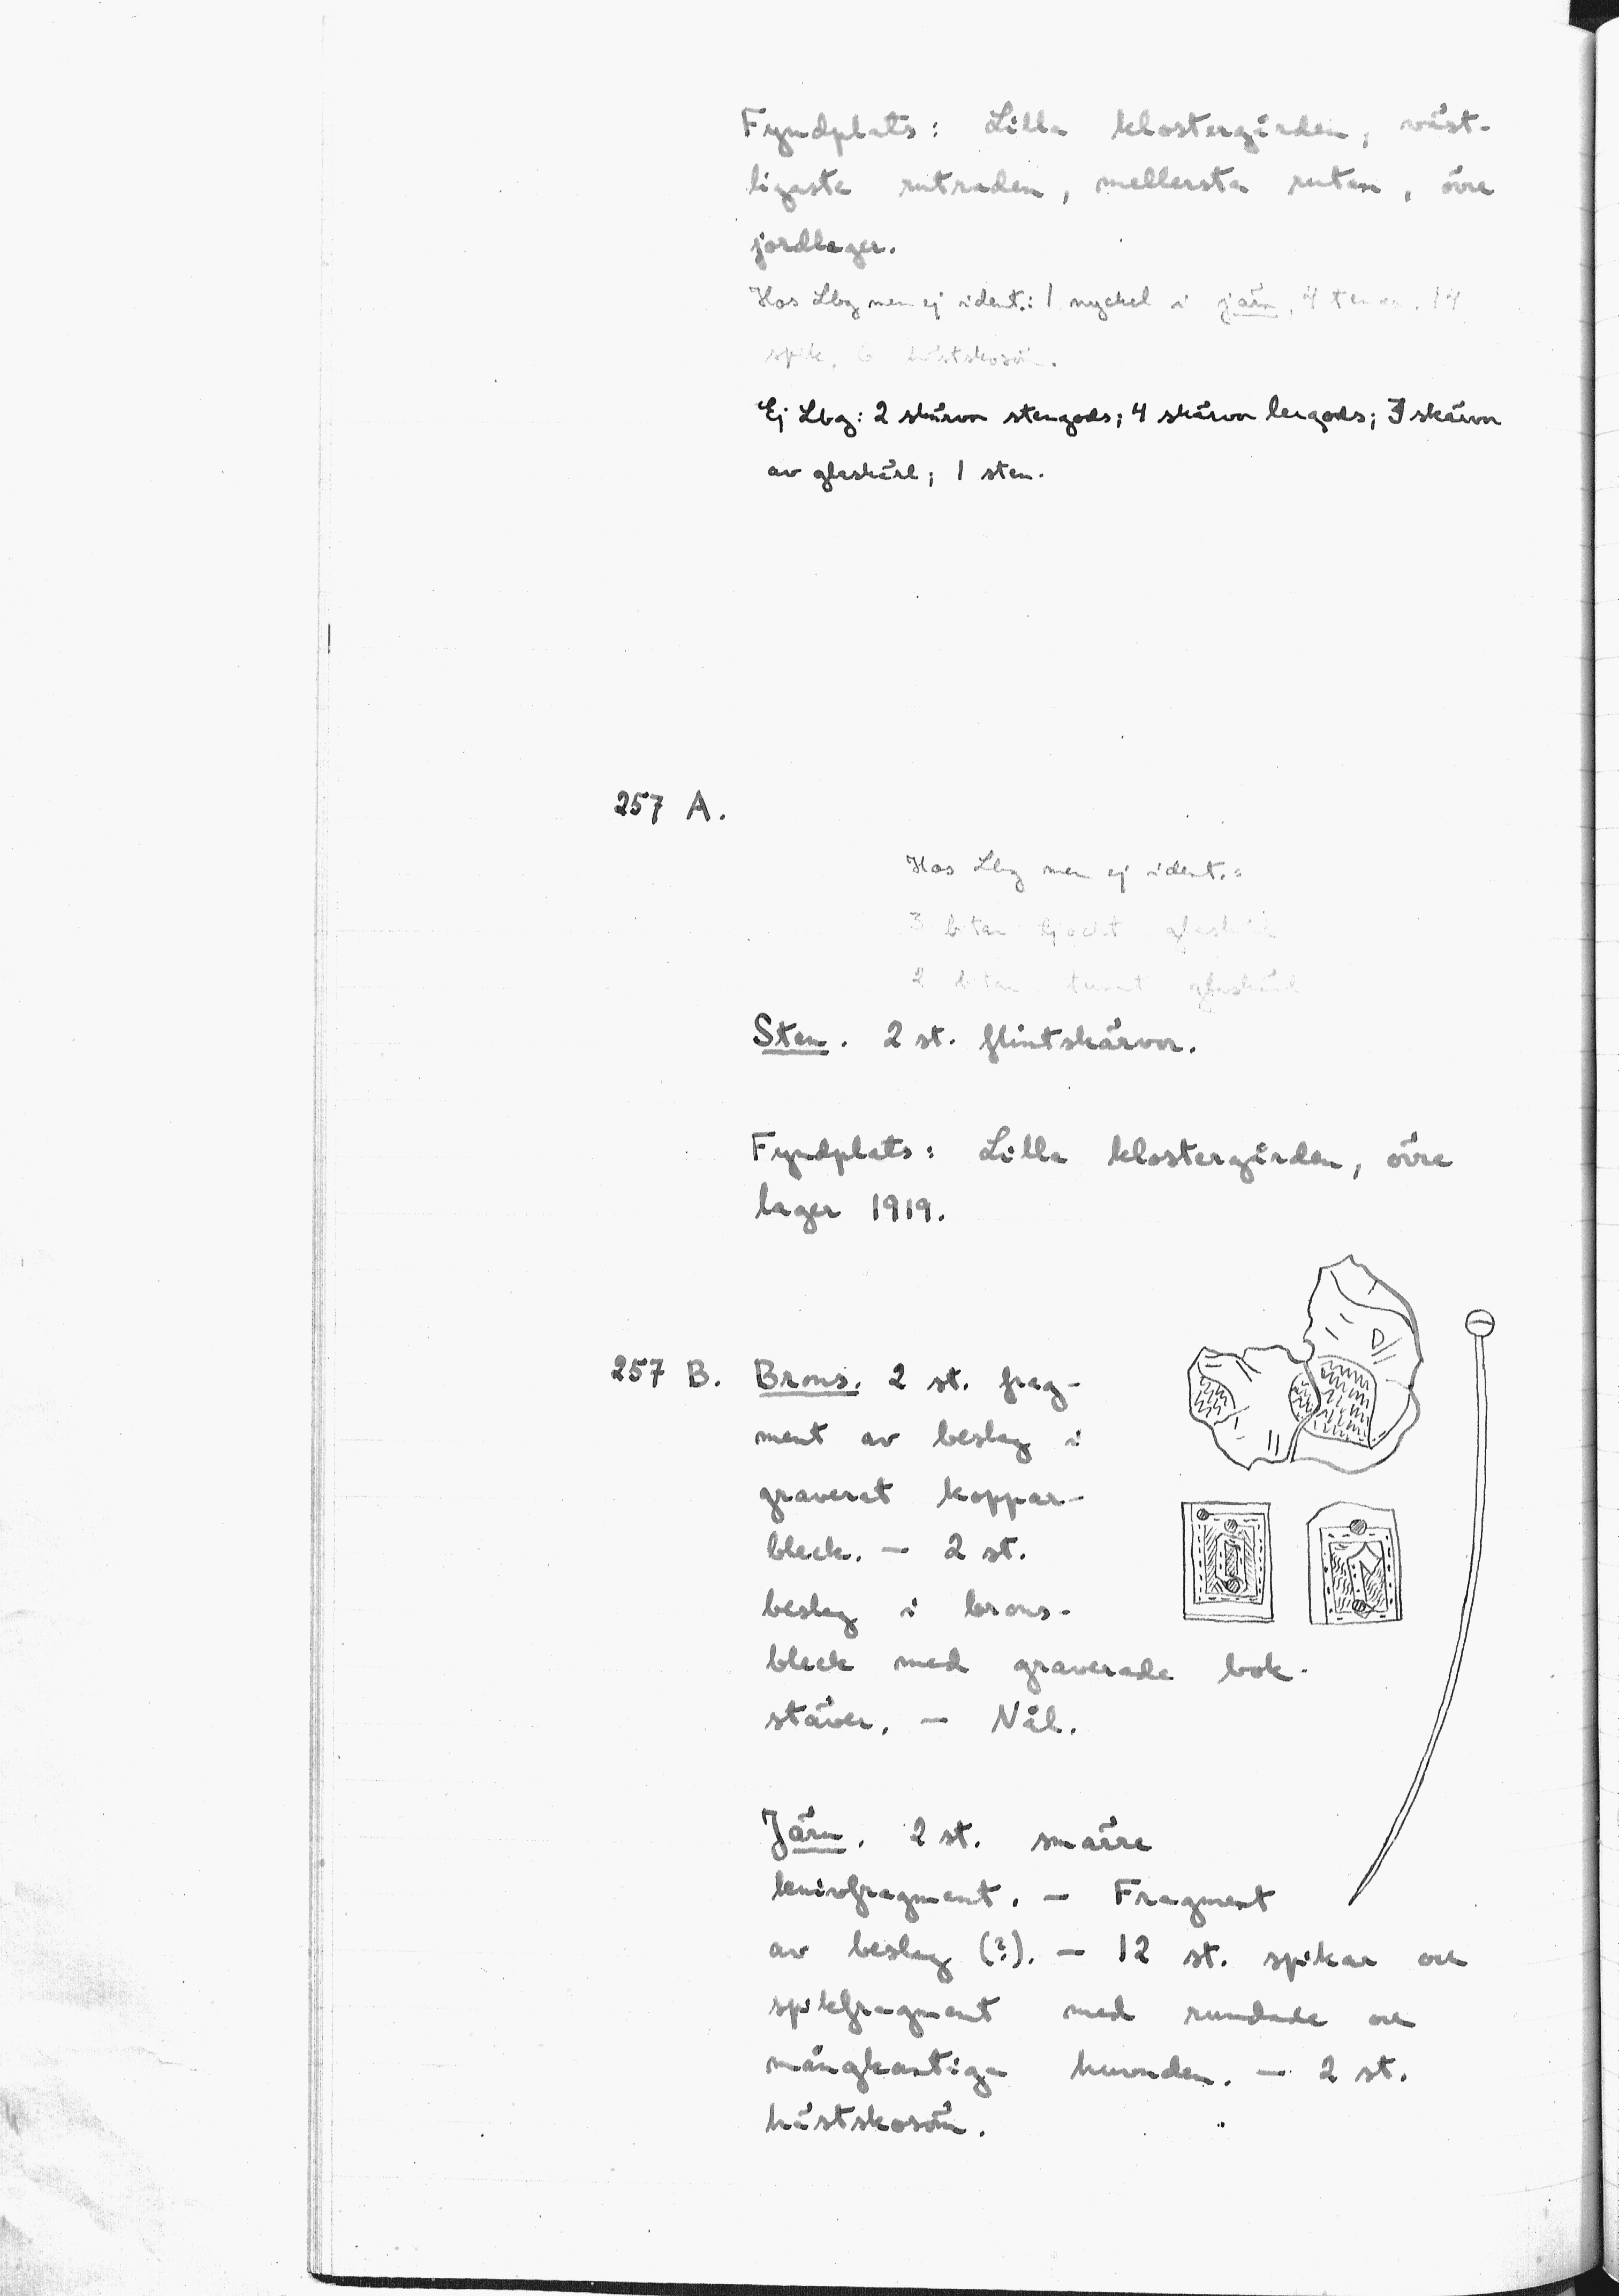 Fyndplats: Lilla klostergården, väst-
ligaste rutraden, mellersta rutan, övre
jordlager.
Hos Lbg men ej ident.: 1 nyckel i järn, 4 tenar, 14
spik, 6 hästskosöm.
Ej Lbg: 2 skärvor stengods; 4 skärvor lergods; 3 skärvor
av glaskärl; 1 sten.
257 A.
Hos Lbg men ej ident.:
3 bitar tjockt glaskärl
2 bitar tunnt glaskärl
Sten. 2 st. flintskärvor.
Fyndplats: Lilla klostergården, övre
lager 1919.
257 B. Brons. 2 st. frag-
ment av beslag i
graverat koppar-
bleck. — 2 st.
beslag i brons-
bleck med graverade bok-
stäver. — Nål.
Järn. 2 st. smärre
knivfragment. — Fragment
av beslag (?). — 12 st. spikar och
spikfragment med rundade och
mångkantiga huvuden. — 2 st.
hästskosöm.